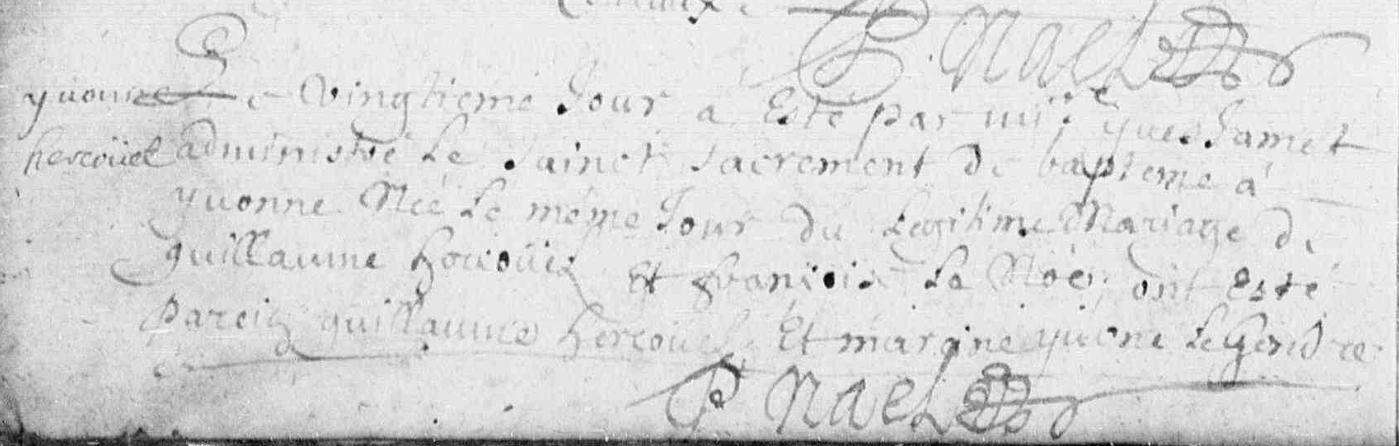 P. Nael
yvonne
hercoüet
Le vingtieme Jour a Esté par mi[re] yves Jamet
administré Le sainct sacrement de bapteme a
yvonne Née Le méme Jour du Legitime Mariage de
guillaume hercoüet Et francoise Le Noër, ont Esté
pareins guillaume hercouet Et marqine yvone Le Gendre
P. Nael